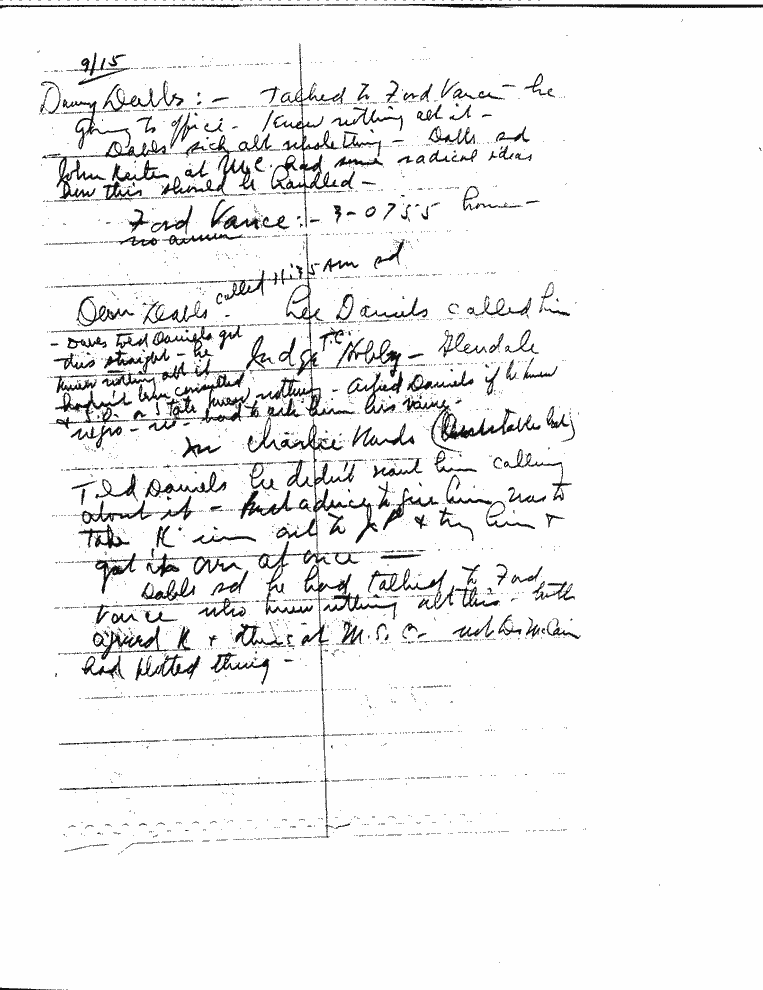 9/15
Danny Dabbs : - Talked to Ford Vance - he
going to office - Knew nothing abt it -
Dabbs sick abt whole thing - Dabbs sd
John Reiter at M.C. had some radical ideas
how this should be handled -
Ford Vance :- 3-0755 home -
no answer
called 11:35 AM sd
Dean Dabbs - Lee Daniels called him
T.C.
Judge Hobby - Glendale
- Daves told Daniels get
this straight - he
knew nothing abt it
hadn't been consulted
knew nothing - asked Daniels if he knew
negro - no - had to ask him his name -
in Charlie Wards
Told Daniels he didn't want him calling
about it - advice to give him was to
take K in to J P & try him &
get it over at once
Dabbs sd he had talked to Ford
Vance who knew nothing abt this - both
agreed K & at M.S.C. not Dr McCain
had plotted thing -